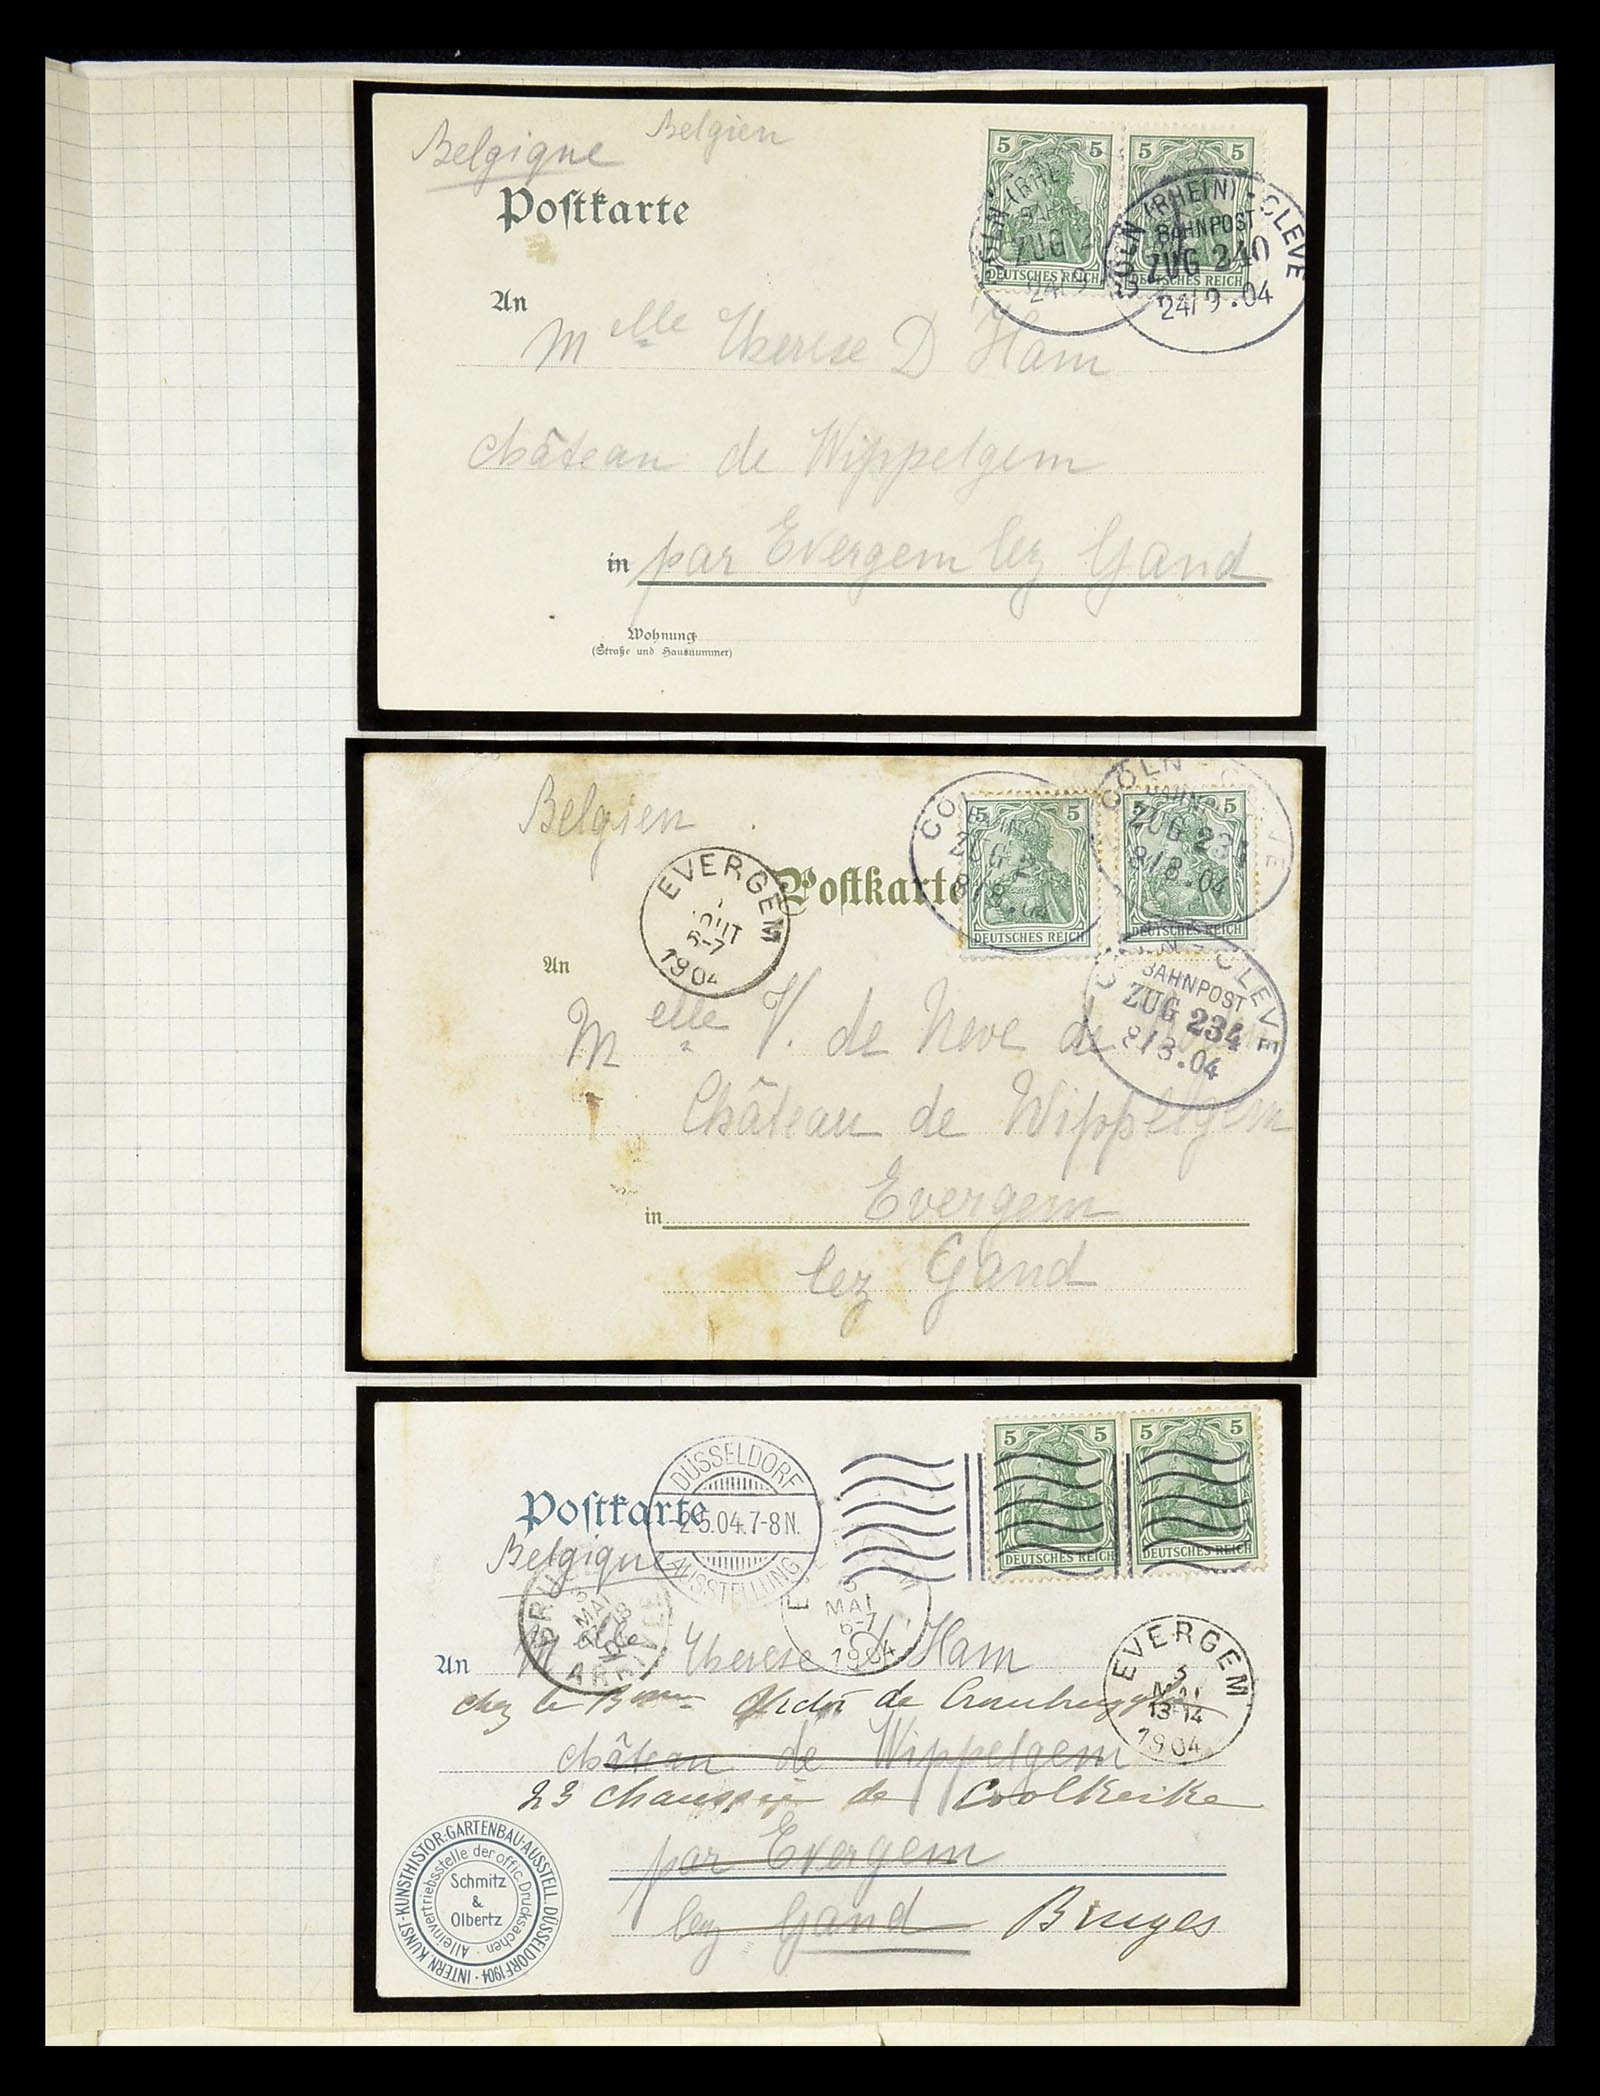 Belgique Belgien
Postkarte
5 5 5 5
DEUTSCHES REICH DEUTSCHES REICH
CÖLN (RHEIN) - CLEVE
BAHNPOST
ZUG 240
24/9.04
An
Melle Therese D'Ham
château de Wippelgem
in par Evergem lez Gand
Wohnung
(Straße und Hausnummer)
Belgien
Postkarte
5 5 5 5
DEUTSCHES REICH DEUTSCHES REICH
CÖLN - CLEVE
ZUG 234
8/8.04
EVERGEM
6-7
1904
CLEVE
BAHNPOST
ZUG 234
8/8.04
An
Melle V. de Neve de
Château de Wippelgem
in Evergem
lez Gand
Postkarte
Belgique
DÜSSELDORF
2.5.04.7-8N.
AUSSTELLUNG
5 5 5 5
DEUTSCHES REICH DEUTSCHES REICH
MAI
6-7
1904
EVERGEM
5
MAI
13-14
1904
An Melle Therese D'Ham
chez le de
château de Wippelgem
23 chaussée de Coolkerke
par Evergem
lez Gand Bruges
INTERN. KUNST-KUNSTHISTOR.-GARTENBAU-AUSSTELL. DÜSSELDORF 1904
Alleinvertriebsstelle der offic. Drucksachen
Schmitz
&
Olbertz